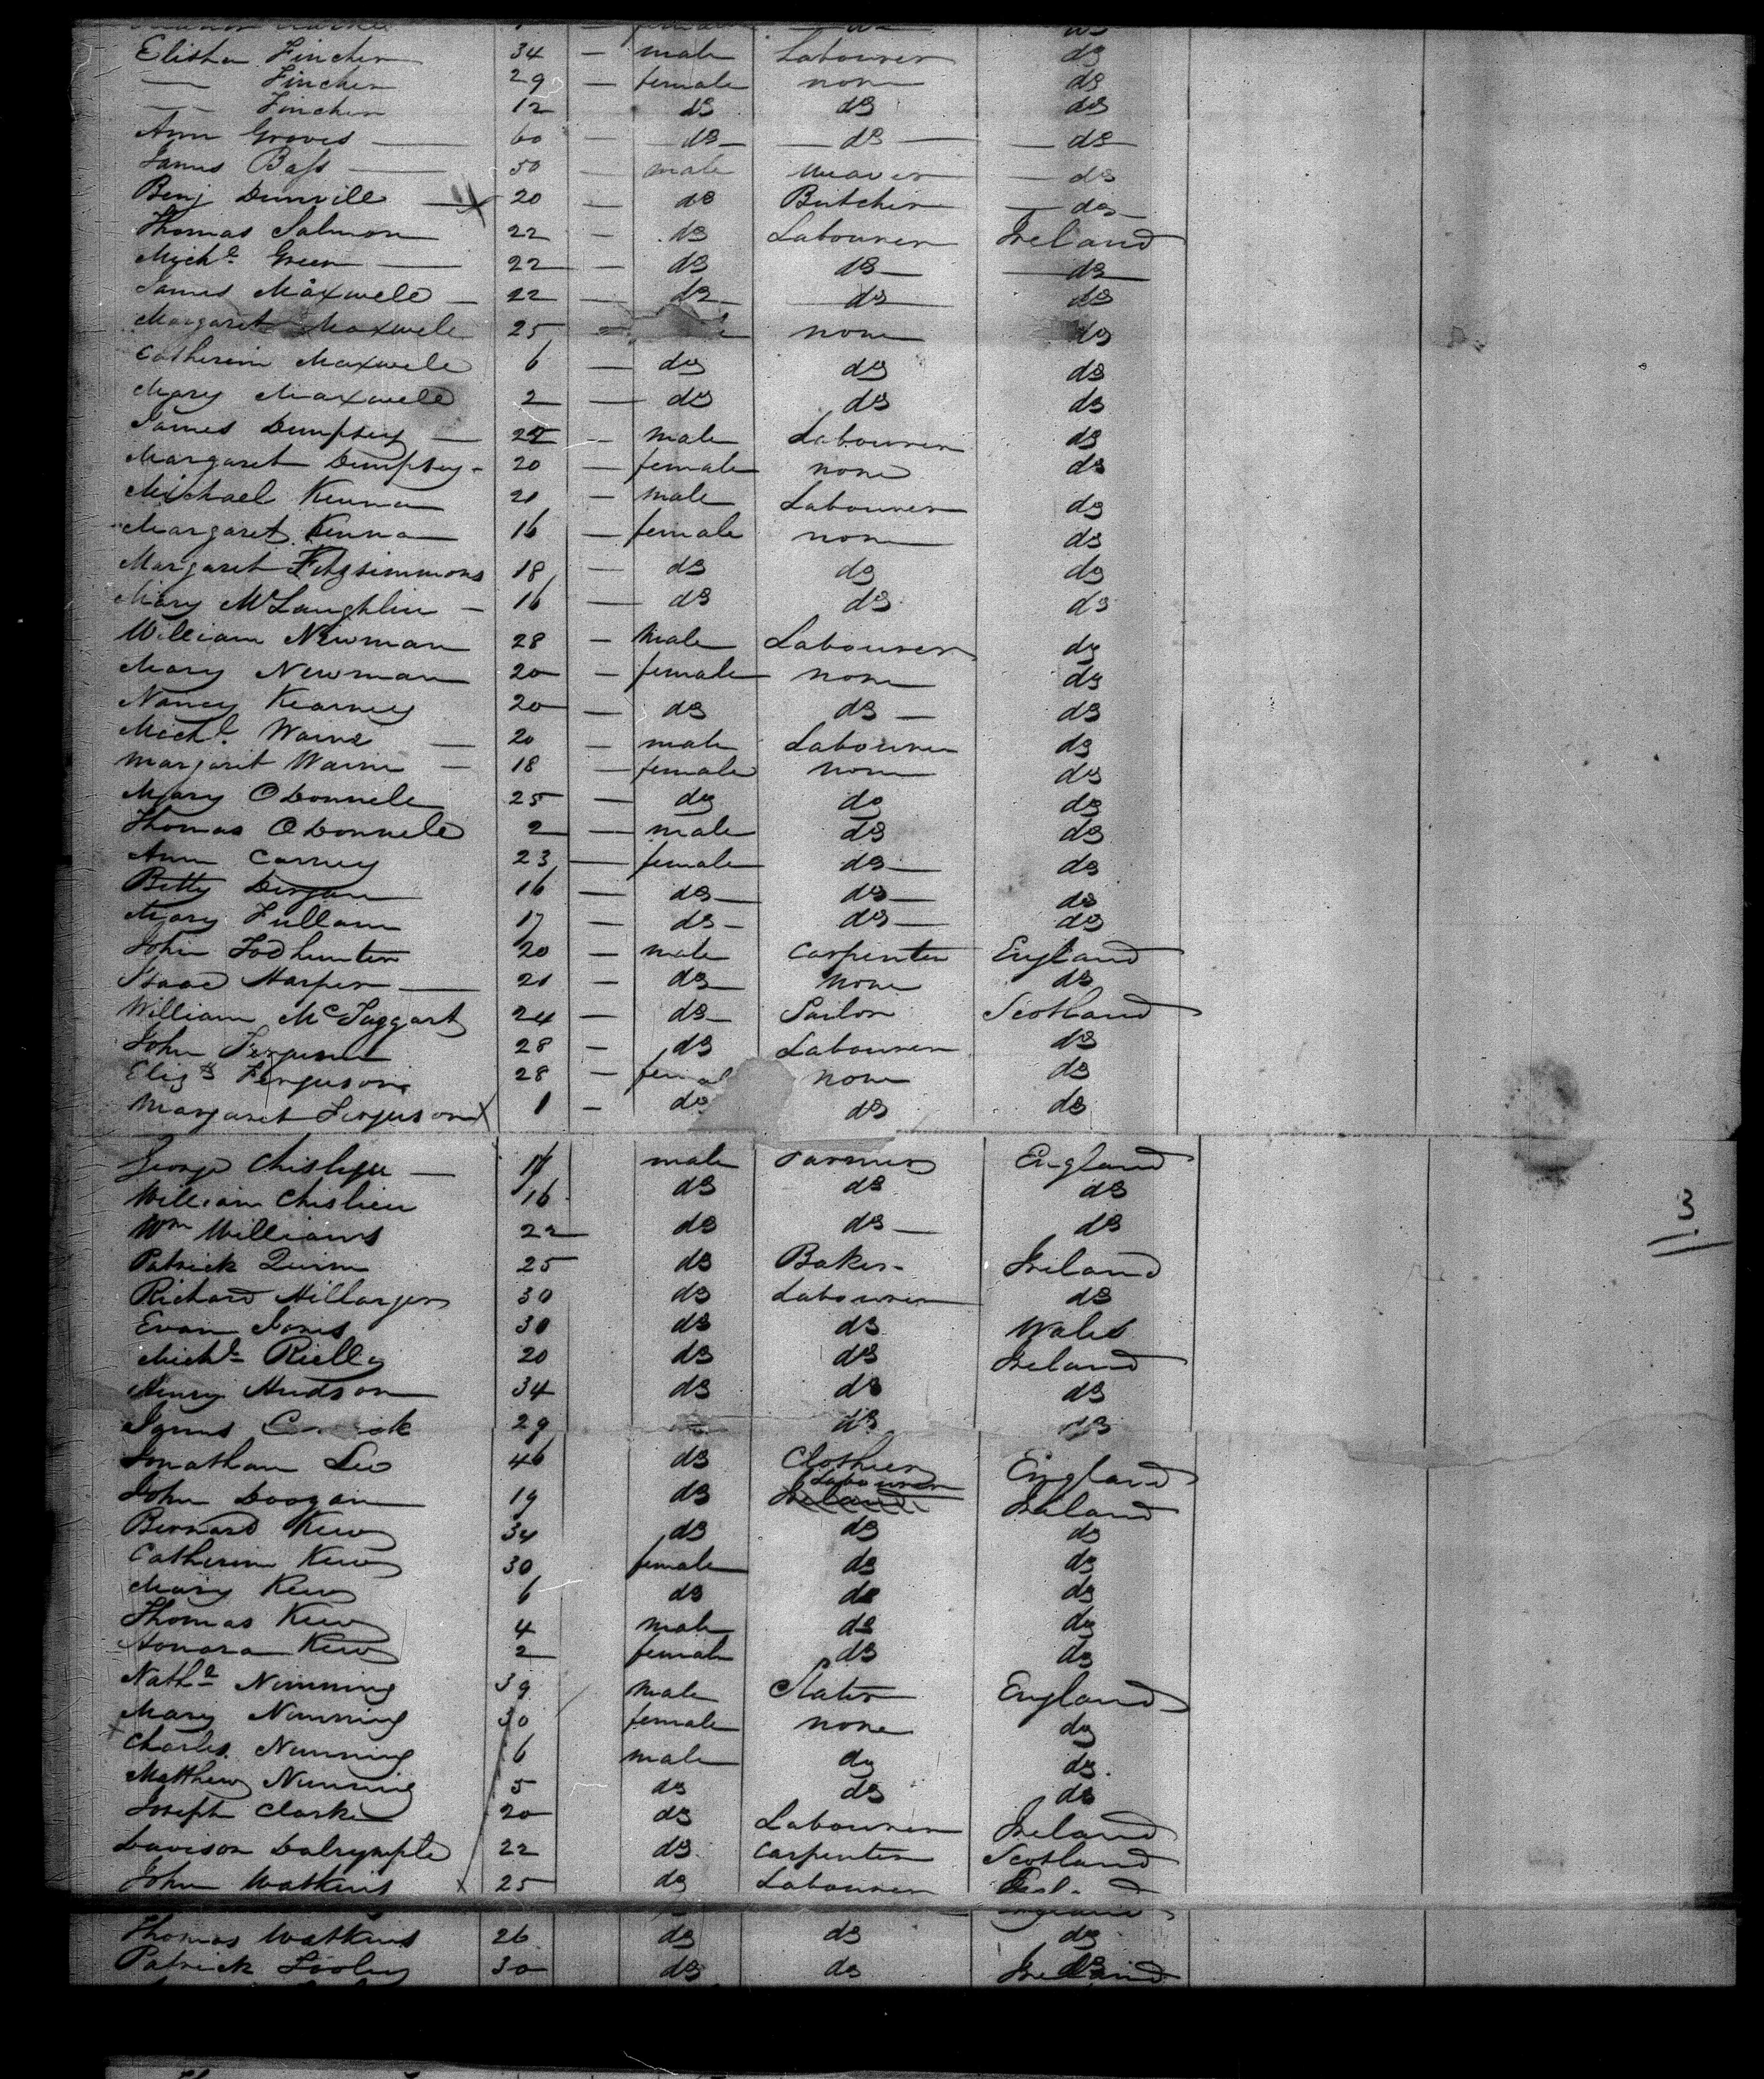 Elisha Fincher 34 — male Labourer do
— Fincher 29 — female none do
— Fincher 12 do do do
Ann Groves — 60 — do — do — do
James Bass — 50 — male Weaver — do
Benj Dunville — x 20 — do Butcher — do
Thomas Salmon 22 — do Labourer Ireland
Michl Green — 22 — do do — do
James Maxwell — 22 — do do do
Margaret Maxwell 25 none do
Catherine Maxwell 6 — do do do
Mary Maxwell 2 — do do do
James Dempsey — male Labourer do
Margaret Dempsey - 20 — female none do
Michael Kenna 21 — male Labourer do
Margaret Kenna 16 — female none do
Margaret Fitzsimmons 18 — do do do
Mary McLaughlin — 16 — do do do
William Newman 28 — male Labourer do
Mary Newman 20 — female none do
Nancy Kearney 20 — do do — do
Michl Waine — 20 — male Labourer do
Margaret Waine — 18 — female none do
Mary ODonnell 25 — do do do
Thomas ODonnell 2 — male do do
Ann Carney 23 — female do — do
Betty 16 — do — do — do
Mary Fullam 17 — do — do — do
John Todhunter 20 — male Carpenter England
Isaac Harper — 21 — do none do
William McTaggart 24 — do — Sailor Scotland
John Ferguson 28 — do Labourer do
Elizth Ferguson 28 — femal none do
Margaret Ferguson x 1 — do do do
George — male Farmer England
William 16 do do do
Wm Williams 22 do do — do
Patrick Quinn 25 do Baker - Ireland
3
Richard 30 do Labourer do
Evan Jones 30 do do Wales
Michl Rielly 20 do do Ireland
Henry Hudson 34 do do do
James 29 do do
Jonathan Lee 46 do Clothier England
John Doogan 19 do Labourer Ireland
Bernard Kew 34 do do do
Catherine Kew 30 female do do
Mary Kew 6 do do do
Thomas Kew 4 male do do
Honora Kew 2 female do do
Nathl Nunning 39 male Slater England
Mary Nunning 30 female none do
Charles Nunning 6 male do do
Matthew Nunning 5 do do do
Joseph Clarke 20 do Labourer Ireland
Davison Dalrymple 22 do Carpenter Scotland
John Watkins x 25 do Labourer
Thomas Watkins 26 do do do
Patrick 30 do do Ireland